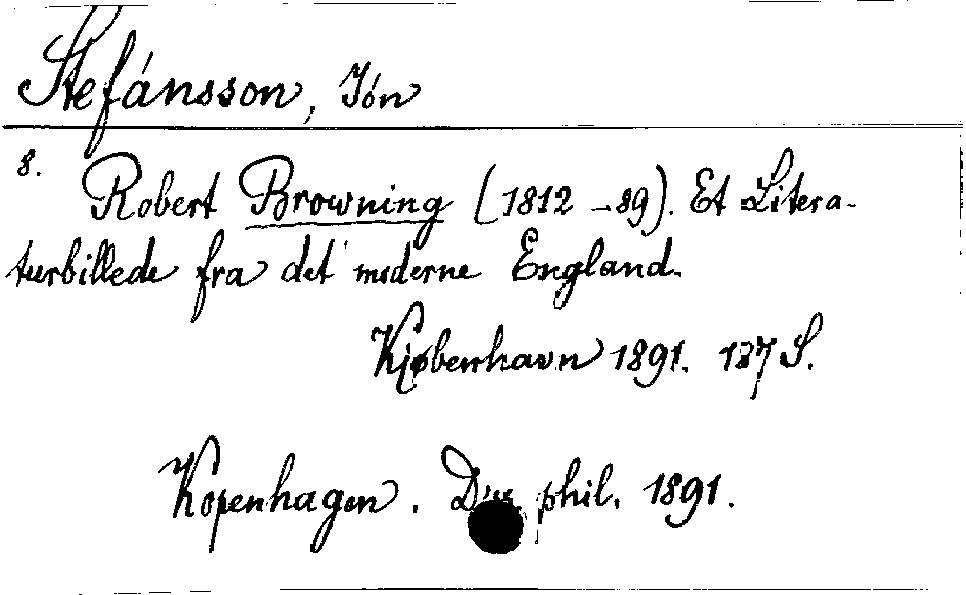 Stefánsson, Jón
8.
Robert Browning (1812-89). Et Litera-
turbillede fra det moderne England.
Kjøbenhavn 1891. 187 S.
Kopenhagen. Diss. phil. 1891.